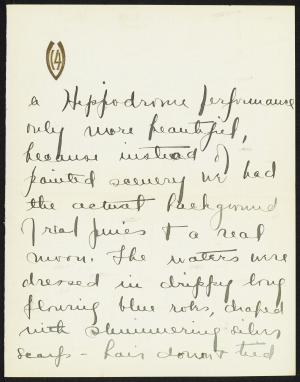 a Hippodrome performance
only more beautiful,
because instead of
painted scenery we had
the actual background
of real pines & a real
moon. The waters were
dressed in drippy long
flowing blue robs, draped
with shimmering silver
scarfs - hair down & tied